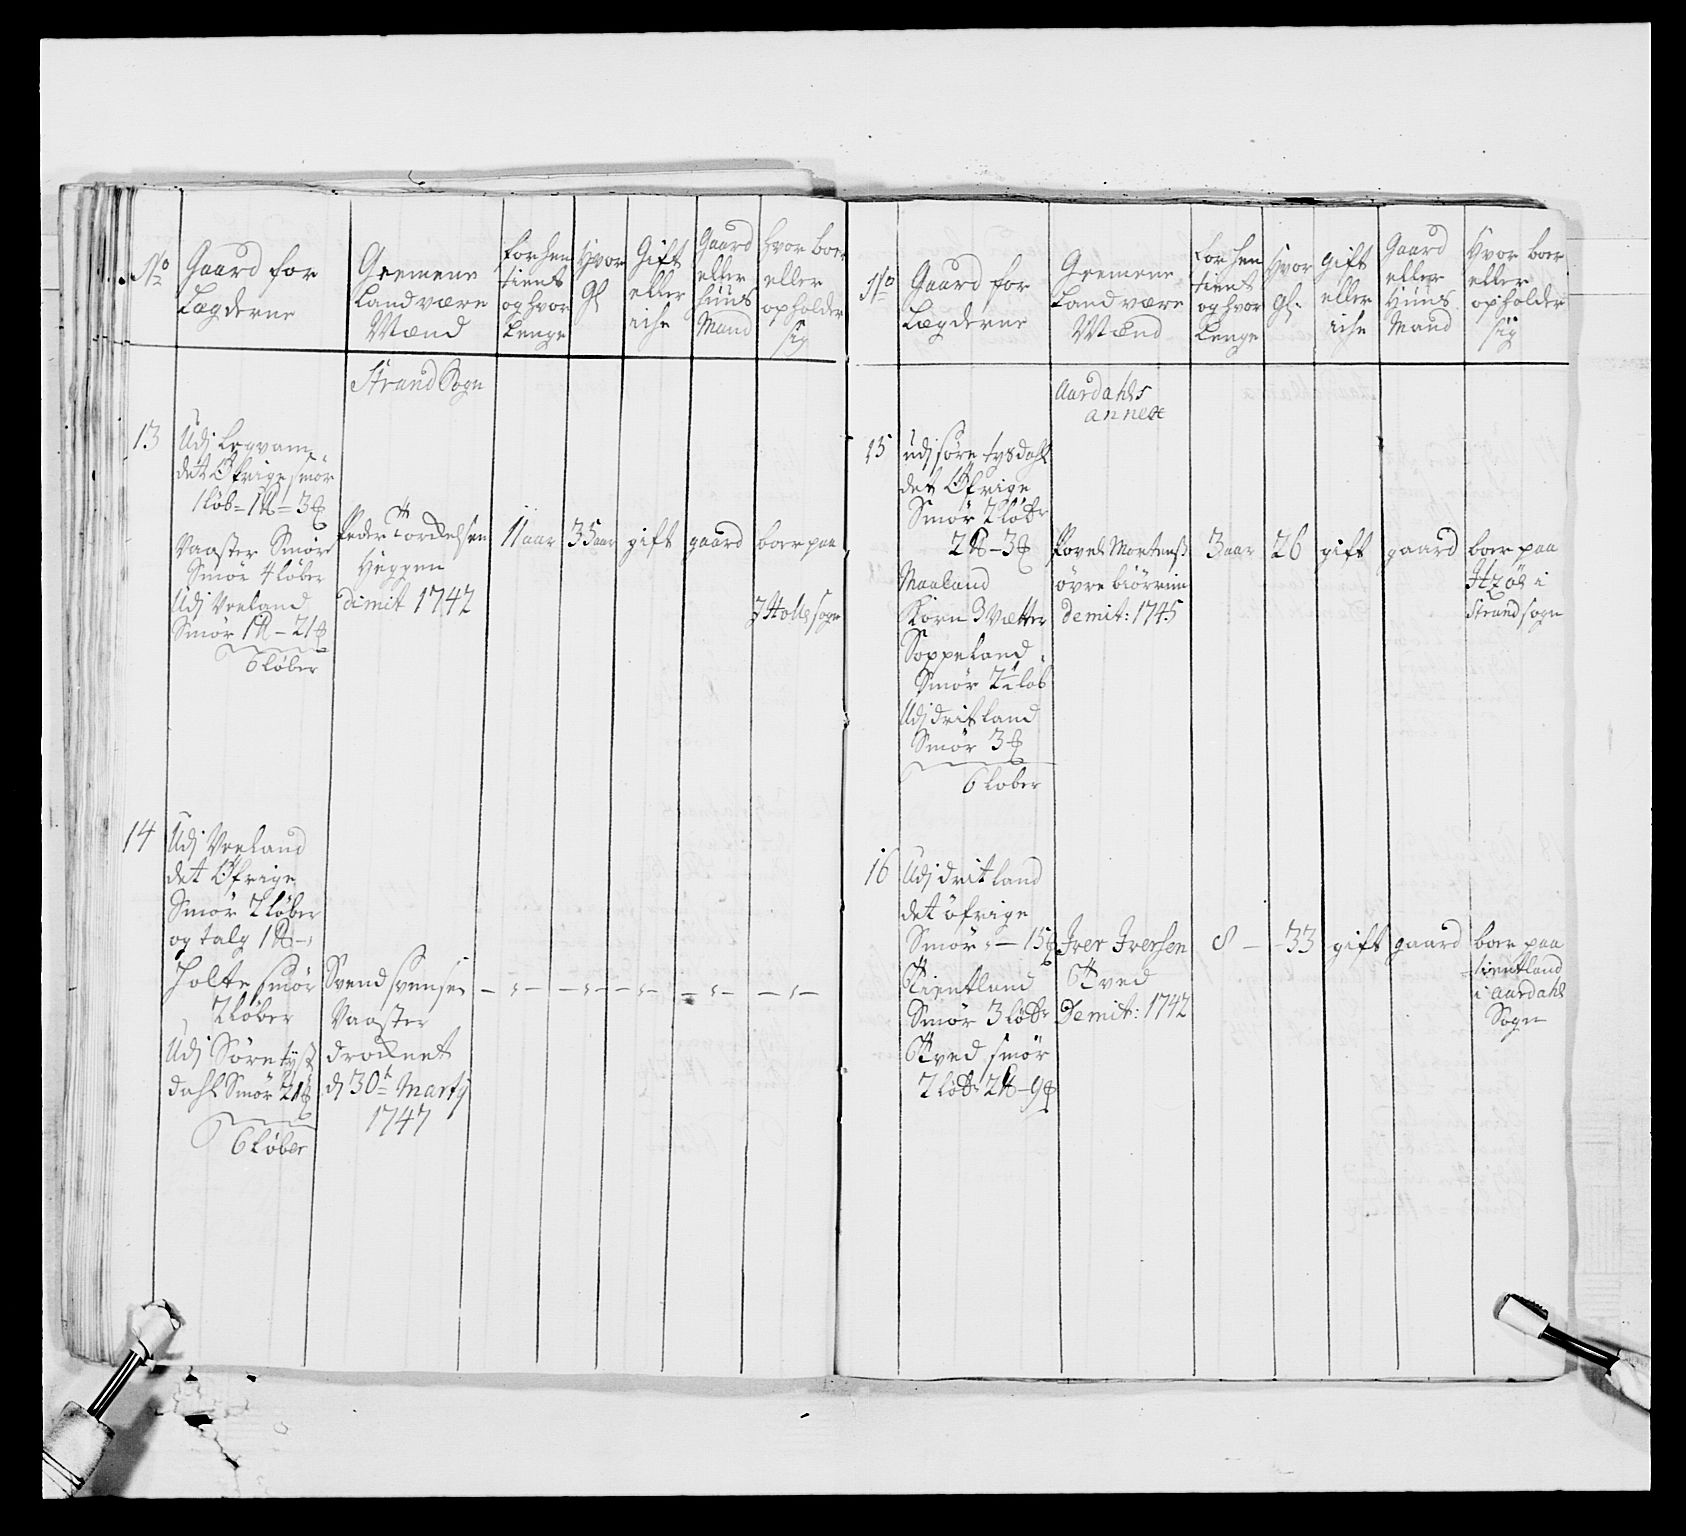 No
Gaard for
Lægderne
Geemene
Landværs
Mænd
forhen
tient
og hvor
Lenge
Hvor
Gl
Gift
eller
iche
Gaard
eller
huus
Mand
hvor boer
eller
opholder
sig
Strand Sogn
13
Udj
det Øfrige smør
1 løb
Vaaster Smør
Smør 4 løber
Udj Veeland
Smør
6 løber
Peder Torkelsen
Heggen
dimit 1742
11 aar
35 aar
gift
gaard
boer paa
J Holle sogn
14
Udj Veeland
det Øfrige
Smør 2 løber
og talg
Holte smør
2 løber
Udj Søre tys
dahl Smør
6 løber
Svend Svensen
Vaaster
droknet
d 30te Martj
1747
No
Gaard for
Lægderne
Geemene
Landværs
Mænd
forhen
tient
og hvor
Lenge
Hvor
Gl.
gift
eller
iche
Gaard
eller
Huus
Mand
Hvor boer
eller
opholder
sig
Aardahls
annex
15
udj søre tysdahl
det Øfrige
Smør 2
Maaland
Korn 3 Vætter
Soppeland
Smør 2½ løb
Udj dritland
Smør 3
6 løber
Povel Mortens
øvre
demit: 1745
3 aar
26
gift
gaard
boer paa
i
Strand sogn
16
Udj dritland
det øfrige
Smør
Tientland
Smør 3
Qved smør
2
Iver Iversen
Qved
Demit: 1742
8 –
33
gift
gaard
boer paa
tientland
i Aardahl
Sogn